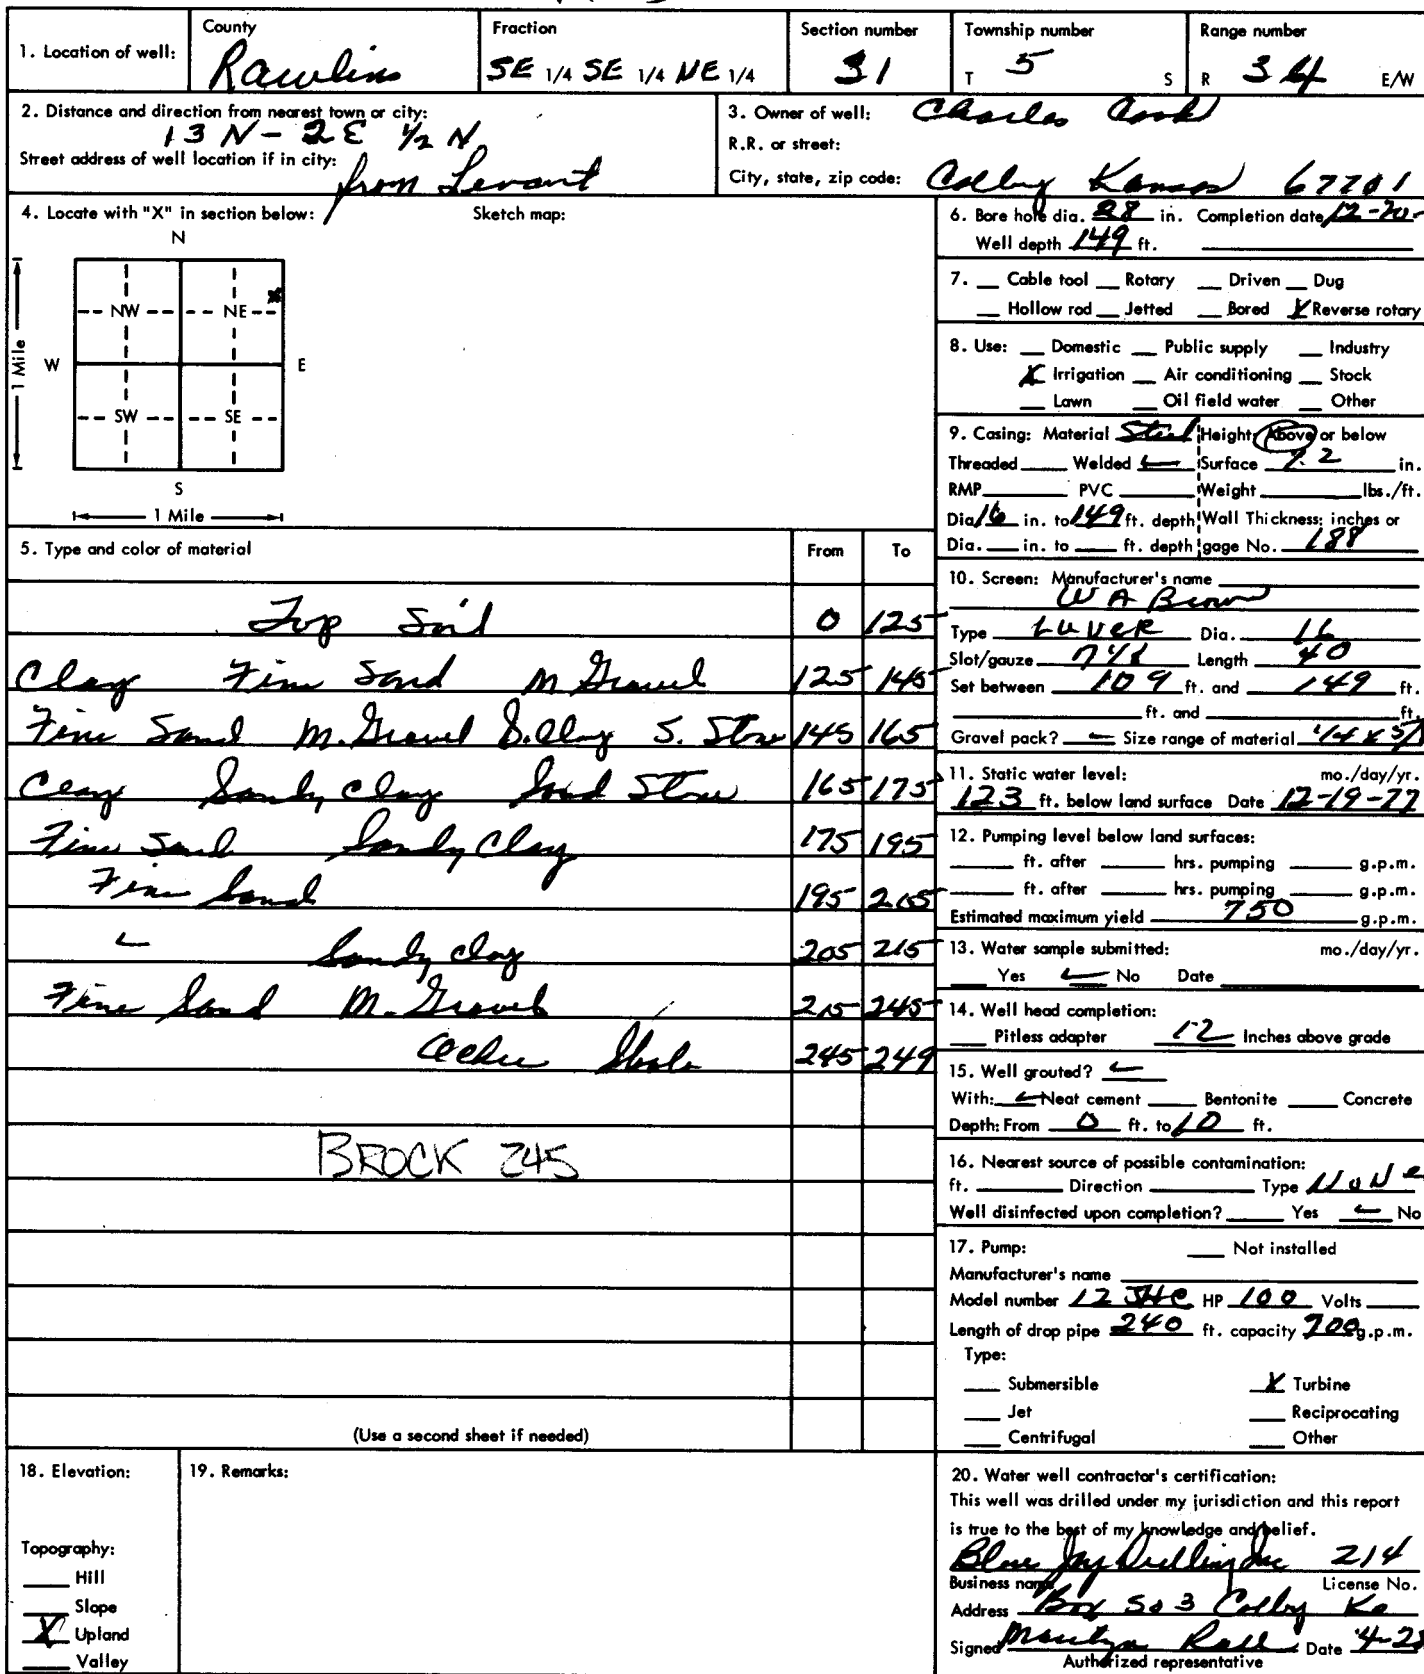 1. Location of well: County Rawlins Fraction SE 1/4 SE 1/4 NE 1/4 Section number 31 Township number T 5 S Range number R 34 E/W
2. Distance and direction from nearest town or city: 13 N - 2 E 1/2 N
Street address of well location if in city: from Levant
3. Owner of well: Charles Cook
R.R. or street:
City, state, zip code: Colby Kansas 67701
4. Locate with "X" in section below: Sketch map:
N
NW NE
W E
1 Mile
SW SE
S
1 Mile
5. Type and color of material From To
Top Soil 0 125
Clay Fine Sand M Gravel 125 145
Fine Sand M. Gravel S. Clay S. Stone 145 165
Clay Sandy Clay Sand Stone 165 175
Fine Sand Sandy Clay 175 195
Fine Sand 195 205
Sandy Clay 205 215
Fine Sand M. Gravel 215 245
Shale 245 249
BROCK 245
(Use a second sheet if needed)
6. Bore hole dia. 28 in. Completion date 12-20-
Well depth 149 ft.
7. Cable tool Rotary Driven Dug
Hollow rod Jetted Bored X Reverse rotary
8. Use: Domestic Public supply Industry
X Irrigation Air conditioning Stock
Lawn Oil field water Other
9. Casing: Material Steel Height: Above or below
Threaded Welded Surface in.
RMP PVC Weight lbs./ft.
Dia 16 in. to 149 ft. depth Wall Thickness: inches or
Dia. in. to ft. depth gage No. 188
10. Screen: Manufacturer's name
W A Brown
Type LUVER Dia. 16
Slot/gauze Length 40
Set between 109 ft. and 149 ft.
ft. and ft.
Gravel pack? Size range of material 1/4 x
11. Static water level: mo./day/yr.
123 ft. below land surface Date 12-19-77
12. Pumping level below land surfaces:
ft. after hrs. pumping g.p.m.
ft. after hrs. pumping g.p.m.
Estimated maximum yield 750 g.p.m.
13. Water sample submitted: mo./day/yr.
Yes No Date
14. Well head completion:
Pitless adapter 12 Inches above grade
15. Well grouted?
With: Neat cement Bentonite Concrete
Depth: From 0 ft. to 10 ft.
16. Nearest source of possible contamination:
ft. Direction Type NoNe
Well disinfected upon completion? Yes No
17. Pump: Not installed
Manufacturer's name
Model number 12 JHC HP 100 Volts
Length of drop pipe 240 ft. capacity 700 g.p.m.
Type:
Submersible X Turbine
Jet Reciprocating
Centrifugal Other
18. Elevation:
Topography:
Hill
Slope
X Upland
Valley
19. Remarks:
20. Water well contractor's certification:
This well was drilled under my jurisdiction and this report
is true to the best of my knowledge and belief.
Blue Jay Drilling Inc 214
Business name License No.
Address Box 503 Colby Ks
Signed Marilyn Date 4-28
Authorized representative